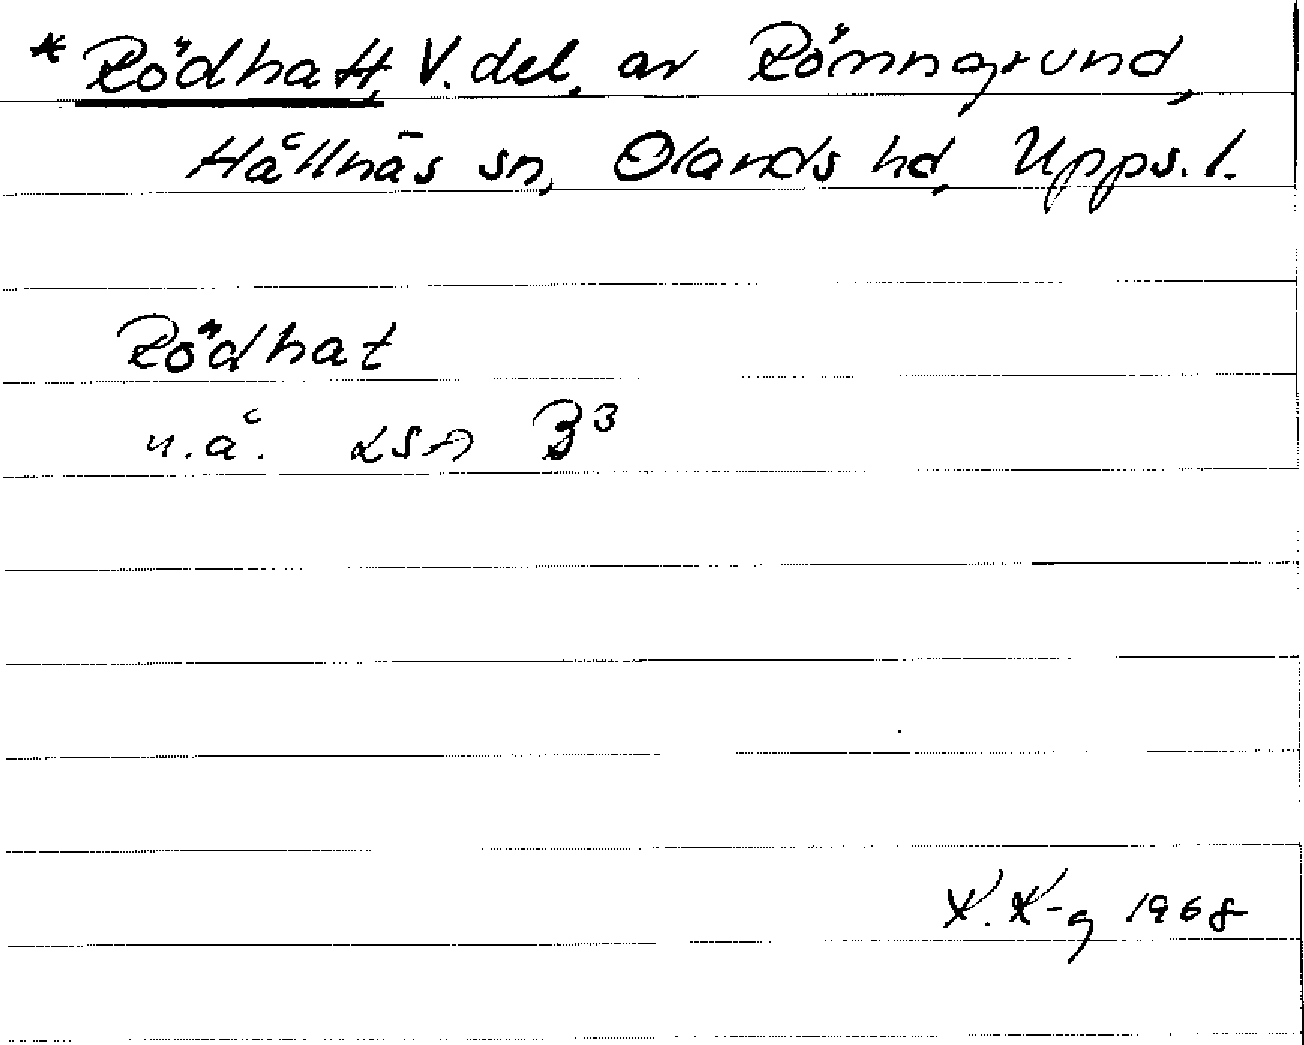 * Rödhatt, V. del. av Rönngrund,
Hållnäs sn, Olands hd, Upps. l.
Rödhat
u.å. LSA B3
K. K-g 1968